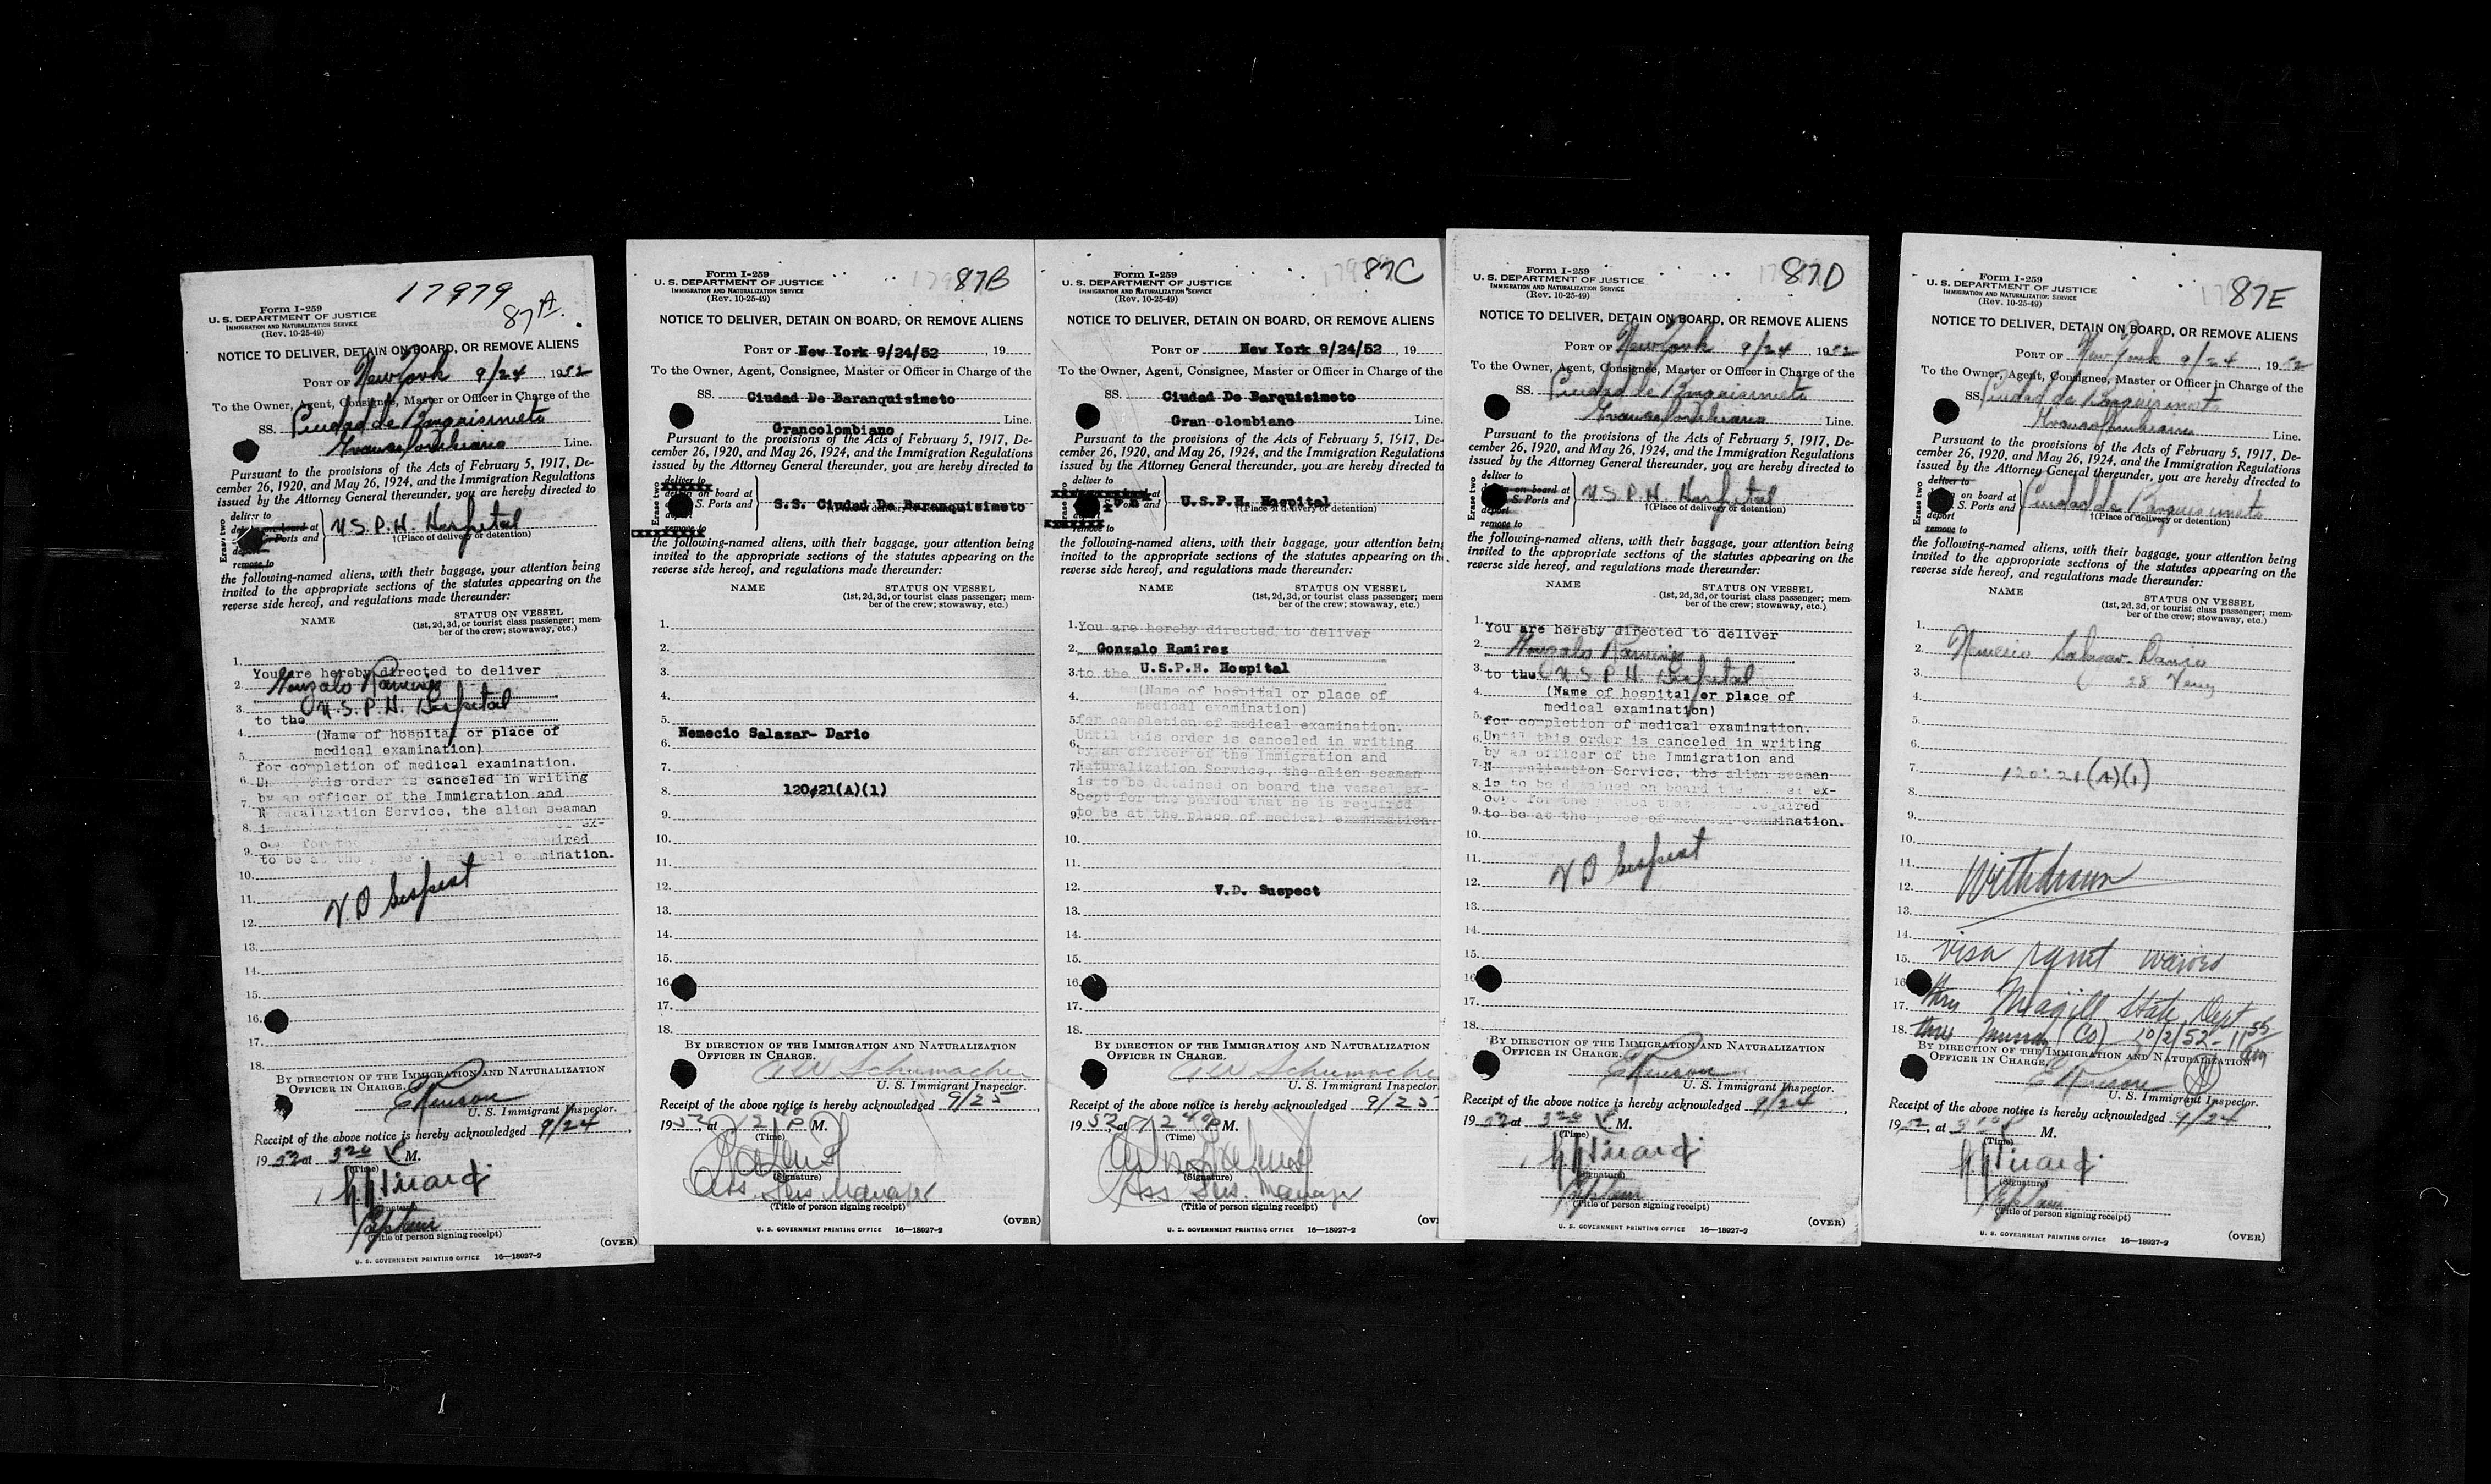 17979
87A.
Form I-259
U. S. DEPARTMENT OF JUSTICE
IMMIGRATION AND NATURALIZATION SERVICE
(Rev. 10-25-49)
NOTICE TO DELIVER, DETAIN ON BOARD, OR REMOVE ALIENS
PORT OF New York 9/24, 1952
To the Owner, Agent, Consignee, Master or Officer in Charge of the
SS. Ciudad de Barquisimeto
Grancolombiana Line.
Pursuant to the provisions of the Acts of February 5, 1917, De-
cember 26, 1920, and May 26, 1924, and the Immigration Regulations
issued by the Attorney General thereunder, you are hereby directed to
Erase two
deliver to
on board at
Ports and
remove to
U.S.P.H. Hospital
†(Place of delivery or detention)
the following-named aliens, with their baggage, your attention being
invited to the appropriate sections of the statutes appearing on the
reverse side hereof, and regulations made thereunder:
NAME
STATUS ON VESSEL
(1st, 2d, 3d, or tourist class passenger; mem-
ber of the crew; stowaway, etc.)
1.
You are hereby directed to deliver
2. Gonzalo Ramirez
3. to the U.S.P.H. Hospital
4. (Name of hospital or place of
medical examination)
5. for completion of medical examination.
6. this order is canceled in writing
by an officer of the Immigration and
7. Naturalization Service, the alien seaman
8. ex-
for the required
9. to be at the place medical examination.
10.
11. V D Suspect
12.
13.
14.
15.
16.
17.
18.
BY DIRECTION OF THE IMMIGRATION AND NATURALIZATION
OFFICER IN CHARGE.
U. S. Immigrant Inspector.
Receipt of the above notice is hereby acknowledged 9/24,
1952 at 3 20 P M.
(Time)
(Signature)
Captain
(Title of person signing receipt)
(OVER)
U. S. GOVERNMENT PRINTING OFFICE 16—18927-2
87B
Form I-259
U. S. DEPARTMENT OF JUSTICE
IMMIGRATION AND NATURALIZATION SERVICE
(Rev. 10-25-49)
NOTICE TO DELIVER, DETAIN ON BOARD, OR REMOVE ALIENS
PORT OF New York 9/24/52, 19
To the Owner, Agent, Consignee, Master or Officer in Charge of the
SS. Ciudad De Baranquisimeto
Line.
Grancolombiano
Pursuant to the provisions of the Acts of February 5, 1917, De-
cember 26, 1920, and May 26, 1924, and the Immigration Regulations
issued by the Attorney General thereunder, you are hereby directed to
Erase two
deliver to
on board at
S. Ports and
remove to
S.S. Ciudad De Baranquisimeto
†(Place of delivery or detention)
the following-named aliens, with their baggage, your attention being
invited to the appropriate sections of the statutes appearing on the
reverse side hereof, and regulations made thereunder:
NAME
STATUS ON VESSEL
(1st, 2d, 3d, or tourist class passenger; mem-
ber of the crew; stowaway, etc.)
1.
2.
3.
4.
5.
Nemecio Salazar- Dario
6.
7.
8. 120.21(A)(1)
9.
10.
11.
12.
13.
14.
15.
16.
17.
18.
BY DIRECTION OF THE IMMIGRATION AND NATURALIZATION
OFFICER IN CHARGE.
Schumacher
U. S. Immigrant Inspector.
Receipt of the above notice is hereby acknowledged 9/25,
1952, at 2 P M.
(Time)
(Signature)
Ass. Sus. Manager
(Title of person signing receipt)
(OVER)
U. S. GOVERNMENT PRINTING OFFICE 16—18927-2
87C
Form I-259
U. S. DEPARTMENT OF JUSTICE
IMMIGRATION AND NATURALIZATION SERVICE
(Rev. 10-25-49)
NOTICE TO DELIVER, DETAIN ON BOARD, OR REMOVE ALIENS
PORT OF New York 9/24/52, 19
To the Owner, Agent, Consignee, Master or Officer in Charge of the
SS. Ciudad De Barquisimeto
Gran olombiano Line.
Pursuant to the provisions of the Acts of February 5, 1917, De-
cember 26, 1920, and May 26, 1924, and the Immigration Regulations
issued by the Attorney General thereunder, you are hereby directed to
Erase two
at
Ports and
remove to
U.S.P.H. Hospital
†(Place of delivery or detention)
the following-named aliens, with their baggage, your attention being
invited to the appropriate sections of the statutes appearing on the
reverse side hereof, and regulations made thereunder:
NAME
STATUS ON VESSEL
(1st, 2d, 3d, or tourist class passenger; mem-
ber of the crew; stowaway, etc.)
1. You are hereby directed to deliver
2. Gonzalo Ramirez
3. to the U.S.P.H. Hospital
4. (Name of hospital or place of
medical examination)
5. for completion of medical examination.
6. Until this order is canceled in writing
by an officer of the Immigration and
7. Naturalization Service, the alien seaman
is to be detained on board the vessel ex-
8. cept for the period that he is required
9. to be at the place of medical examination.
10.
11.
12. V.D. Suspect
13.
14.
15.
16.
17.
18.
BY DIRECTION OF THE IMMIGRATION AND NATURALIZATION
OFFICER IN CHARGE.
Schumacher
U. S. Immigrant Inspector.
Receipt of the above notice is hereby acknowledged 9/25
1952, at 2 P M.
(Time)
(Signature)
Ass Sus. Manager
(Title of person signing receipt)
U. S. GOVERNMENT PRINTING OFFICE 16—18927-2
87D
Form I-259
U. S. DEPARTMENT OF JUSTICE
IMMIGRATION AND NATURALIZATION SERVICE
(Rev. 10-25-49)
NOTICE TO DELIVER, DETAIN ON BOARD, OR REMOVE ALIENS
PORT OF New York 9/24, 1952
To the Owner, Agent, Consignee, Master or Officer in Charge of the
SS. Ciudad de Barquisimeto
Grancolombiana Line.
Pursuant to the provisions of the Acts of February 5, 1917, De-
cember 26, 1920, and May 26, 1924, and the Immigration Regulations
issued by the Attorney General thereunder, you are hereby directed to
Erase two
deliver to
on board at
S. Ports and
deport
remove to
U.S.P.H. Hospital
†(Place of delivery or detention)
the following-named aliens, with their baggage, your attention being
invited to the appropriate sections of the statutes appearing on the
reverse side hereof, and regulations made thereunder:
NAME
STATUS ON VESSEL
(1st, 2d, 3d, or tourist class passenger; mem-
ber of the crew; stowaway, etc.)
1. You are hereby directed to deliver
2. Gonzalo Ramirez
3. to the U.S.P.H. Hospital
4. (Name of hospital or place of
medical examination)
5. for completion of medical examination.
6. Until this order is canceled in writing
by an officer of the Immigration and
7. Naturalization Service, the alien seaman
8. is to be detained on board the ex-
cept for the period that required
9. to be at the place of medical examination.
10.
11. V D Suspect
12.
13.
14.
15.
16
17.
18.
BY DIRECTION OF THE IMMIGRATION AND NATURALIZATION
OFFICER IN CHARGE.
U. S. Immigrant Inspector.
Receipt of the above notice is hereby acknowledged 9/24,
1952 at 3 20 P M.
(Time)
(Signature)
Captain
(Title of person signing receipt)
(OVER)
U. S. GOVERNMENT PRINTING OFFICE 16—18927-2
87E
Form I-259
U. S. DEPARTMENT OF JUSTICE
IMMIGRATION AND NATURALIZATION SERVICE
(Rev. 10-25-49)
NOTICE TO DELIVER, DETAIN ON BOARD, OR REMOVE ALIENS
PORT OF New York 9/24, 1952
To the Owner, Agent, Consignee, Master or Officer in Charge of the
SS. Ciudad de Barquisimeto
Grancolombiana Line.
Pursuant to the provisions of the Acts of February 5, 1917, De-
cember 26, 1920, and May 26, 1924, and the Immigration Regulations
issued by the Attorney General thereunder, you are hereby directed to
Erase two
deliver to
on board at
S. Ports and
deport
remove to
Ciudad de Barquisimeto
†(Place of delivery or detention)
the following-named aliens, with their baggage, your attention being
invited to the appropriate sections of the statutes appearing on the
reverse side hereof, and regulations made thereunder:
NAME
STATUS ON VESSEL
(1st, 2d, 3d, or tourist class passenger; mem-
ber of the crew; stowaway, etc.)
1.
2. Nemecio Salazar-Dario
3. 28 Venez
4.
5.
6.
7. 120.21(A)(1)
8.
9.
10.
11.
12. Withdrawn
13.
14.
15. Visa rqmt waived
16
17. thru Magill State Dept
18. thru Murray (Co) 10/2/52 - 11 55 am
BY DIRECTION OF THE IMMIGRATION AND NATURALIZATION
OFFICER IN CHARGE.
U. S. Immigrant Inspector.
Receipt of the above notice is hereby acknowledged 9/24,
1952, at 3 20 P M.
(Time)
(Signature)
Captain
(Title of person signing receipt)
(OVER)
U. S. GOVERNMENT PRINTING OFFICE 16—18927-2